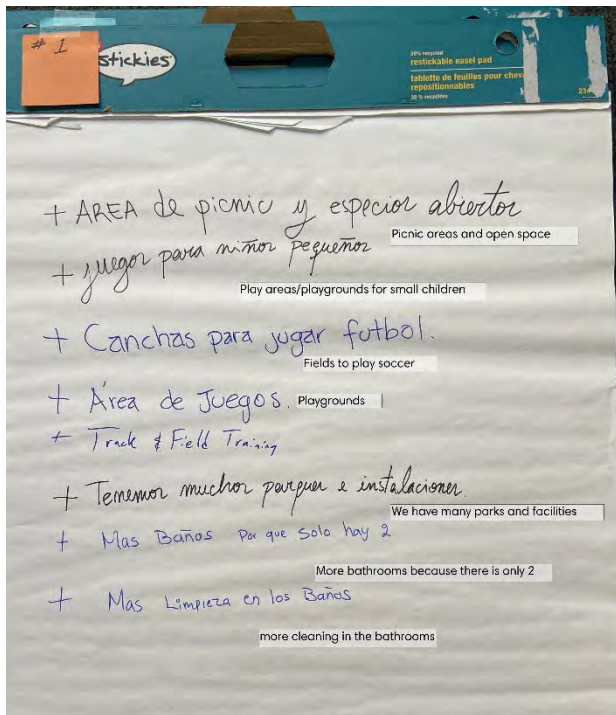 # 1
stickies
30% recycled
restickable easel pad
tablette de feuilles pour chev
repositionnables
30 % recyclées
234
+ AREA de picnic y espacior abiertor
Picnic areas and open space
+ juegor para niñor pequeñor
Play areas/playgrounds for small children
+ Canchas para jugar futbol.
Fields to play soccer
+ Área de Juegos.
Playgrounds
+ Track & Field Training
+ Tenemor muchor parquer e instalacioner.
We have many parks and facilities
+ Mas Baños Por que solo hay 2
More bathrooms because there is only 2
+ Mas Limpieza en los Baños
more cleaning in the bathrooms